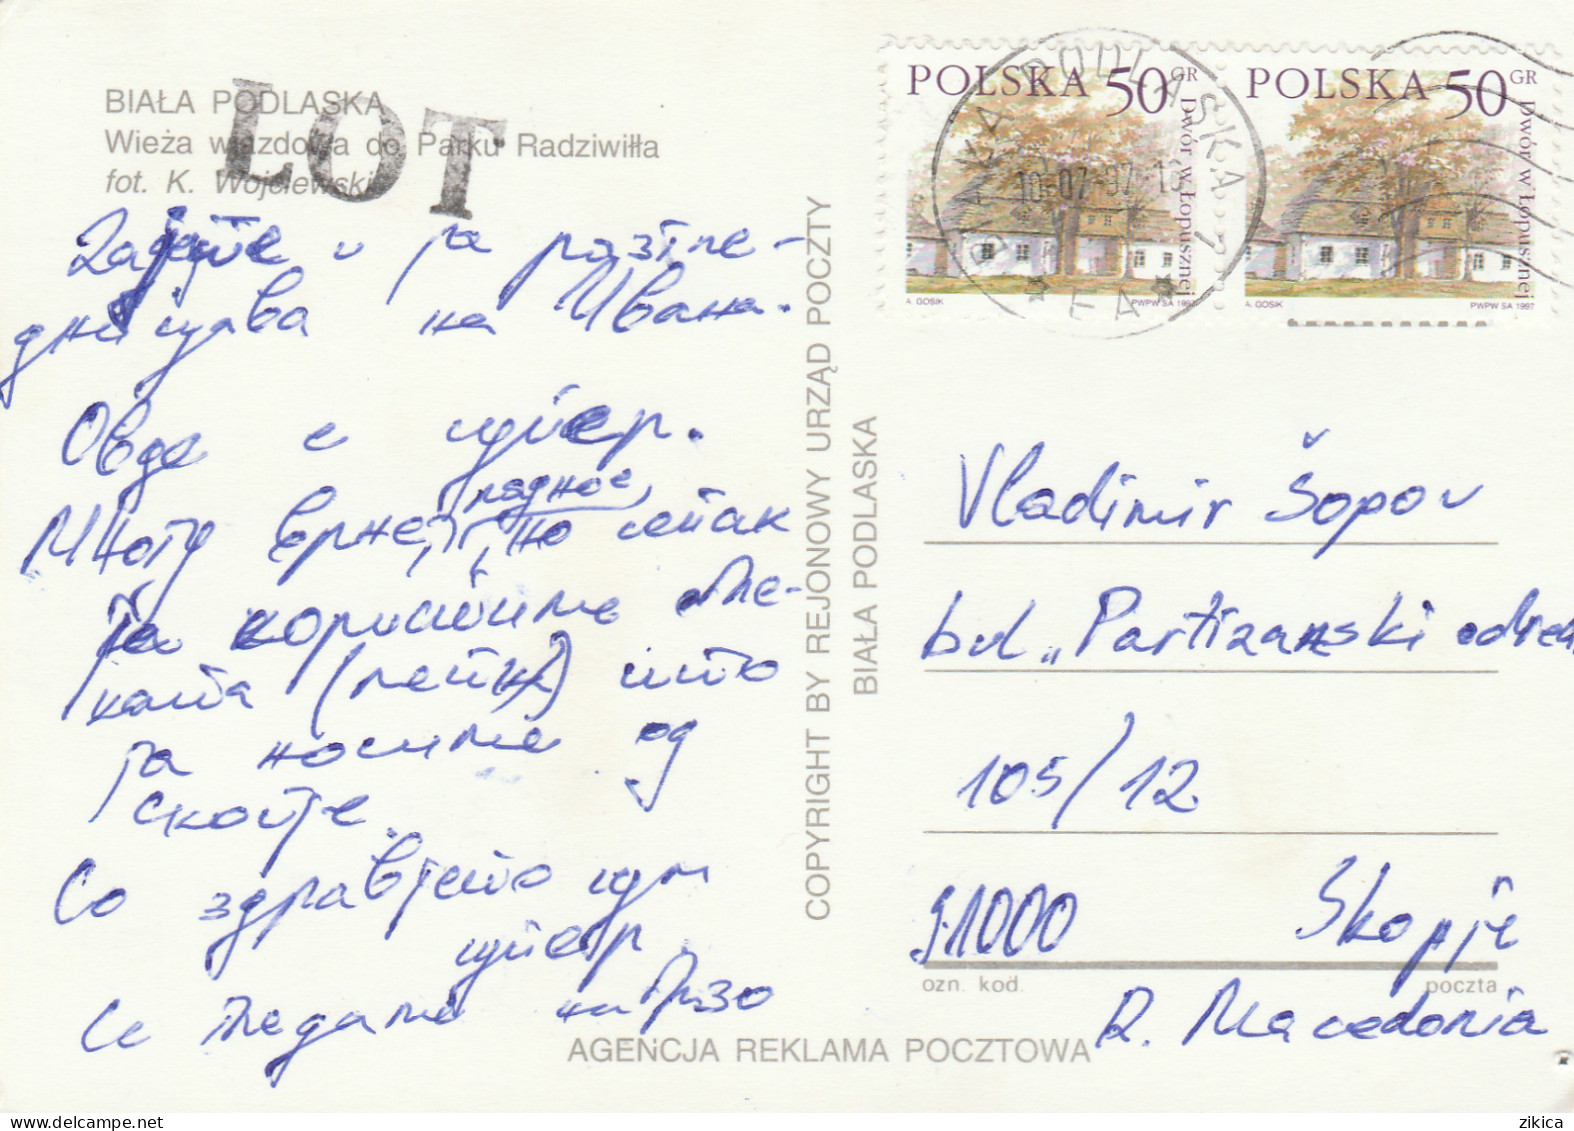 BIAŁA PODLASKA
Wieża wjazdowa do Parku Radziwiłła
fot. K. Wójcierwski
LOT
и ја
на Ивана.
Овде е супер.
Многу врне, ладно е, но сепак
ја користиме
што
ја носиме од
Скопје.
Со здравје што
супер.
Се гледаме набрзо
COPYRIGHT BY REJONOWY URZĄD POCZTY
BIAŁA PODLASKA
POLSKA 50 GR
Dwór w Łopusznej
A. GOSIK
PWPW SA 1997
POLSKA 50 GR
Dwór w Łopusznej
A. GOSIK
PWPW SA 1997
BIAŁA PODLASKA 1
10-07-97
Vladimir Šopov
bul „Partizanski odredi
105/12
91000 Skopje
ozn. kod. poczta
R. Macedonia
AGENCJA REKLAMA POCZTOWA
zikica